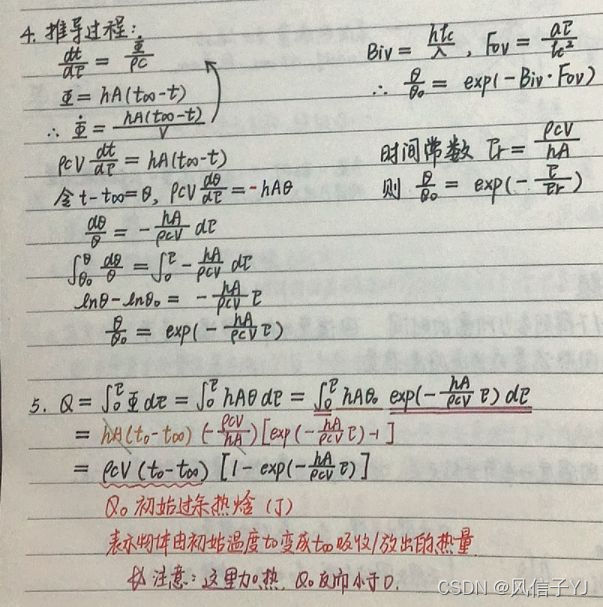 4. 推导过程:
dt/dτ = Φ̇/ρc
Φ = hA(t∞-t)
∴ Φ̇ = hA(t∞-t)/V
ρcV dt/dτ = hA(t∞-t)
令 t-t∞=θ, ρcV dθ/dτ = -hAθ
dθ/θ = - hA/ρcV dτ
∫θ₀^θ dθ/θ = ∫₀^τ - hA/ρcV dτ
lnθ-lnθ₀ = - hA/ρcV τ
θ/θ₀ = exp(- hA/ρcV τ)
Biv = hlc/λ , Fov = aτ/lc²
∴ θ/θ₀ = exp(-Biv·Fov)
时间常数 τr = ρcV/hA
则 θ/θ₀ = exp(- τ/τr)
5. Q = ∫₀^τ Φ dτ = ∫₀^τ hAθ dτ = ∫₀^τ hAθ₀ exp(- hA/ρcV τ) dτ
= hA(t₀-t∞) (- ρcV/hA) [exp(- hA/ρcV τ)-1]
= ρcV(t₀-t∞) [1-exp(- hA/ρcV τ)]
Q₀ 初始过余热焓 (J)
表示物体由初始温度t₀变成t∞吸收/放出的热量
注意:这里加热 Q₀ 反而小于0.
CSDN @风信子YJ